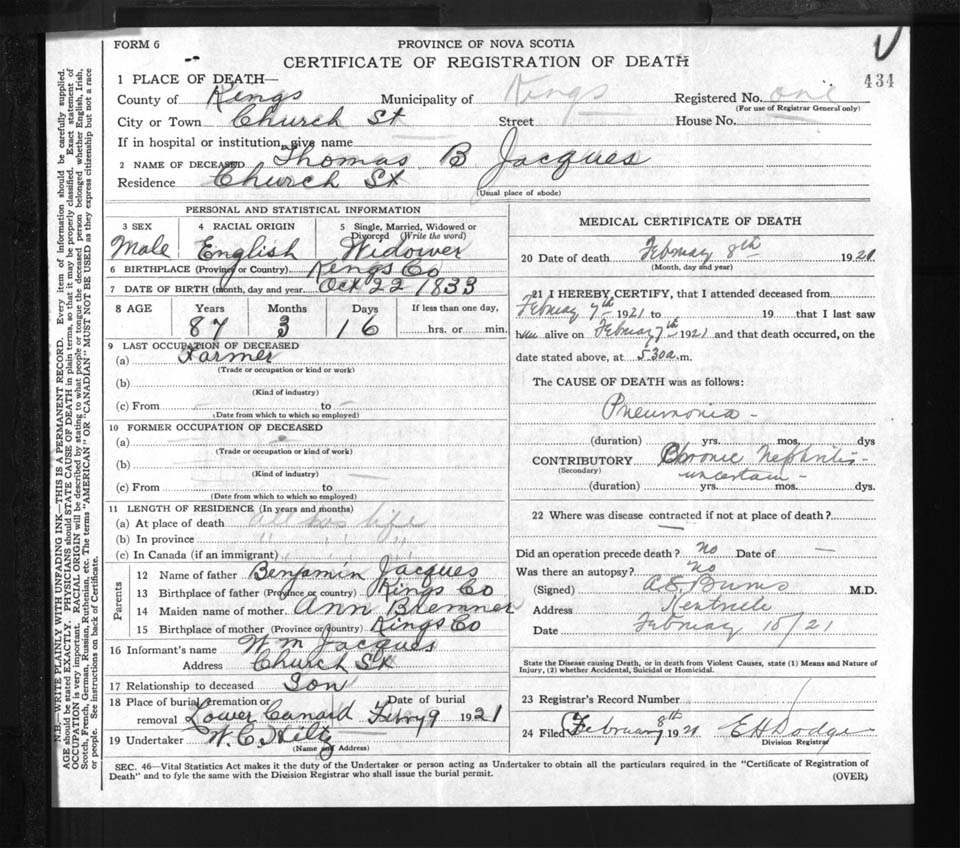 FORM 6
PROVINCE OF NOVA SCOTIA
434
CERTIFICATE OF REGISTRATION OF DEATH
1 PLACE OF DEATH—
County of Kings Municipality of Kings Registered No. one
(For use of Registrar General only)
City or Town Church St Street House No.
If in hospital or institution, give name
2 NAME OF DECEASED Thomas B Jacques
Residence Church St
(Usual place of abode)
PERSONAL AND STATISTICAL INFORMATION
3 SEX 4 RACIAL ORIGIN 5 Single, Married, Widowed or
Divorced (Write the word)
Male English Widower
6 BIRTHPLACE (Province or Country) Kings Co
7 DATE OF BIRTH (month, day and year) Oct 22 1833
8 AGE Years Months Days If less than one day,
87 3 16 hrs. or min.
9 LAST OCCUPATION OF DECEASED
(a) Farmer
(Trade or occupation or kind or work)
(b)
(Kind of industry)
(c) From to
(Date from which to which so employed)
10 FORMER OCCUPATION OF DECEASED
(a)
(Trade or occupation or kind of work)
(b)
(Kind of industry)
(c) From to
(Date from which to which so employed)
11 LENGTH OF RESIDENCE (In years and months)
(a) At place of death all his life
(b) In province " " "
(c) In Canada (if an immigrant) " " "
Parents
12 Name of father Benjamin Jacques
13 Birthplace of father (Province or country) Kings Co
14 Maiden name of mother Ann Bremner
15 Birthplace of mother (Province or country) Kings Co
16 Informant's name Wm Jacques
Address Church St
17 Relationship to deceased Son
18 Place of burial, cremation or Date of burial
removal Lower Canard Febry 9 1921
19 Undertaker W. C. Hiltz
(Name and Address)
MEDICAL CERTIFICATE OF DEATH
20 Date of death February 8th 1921
(Month, day and year)
21 I HEREBY CERTIFY, that I attended deceased from
February 7th 1921 to 19 that I last saw
him alive on February 7th 1921 and that death occurred, on the
date stated above, at 5.30 a.m.
The CAUSE OF DEATH was as follows:
Pneumonia -
(duration) yrs. mos. dys
CONTRIBUTORY Chronic Nephritis -
(Secondary) uncertain -
(duration) yrs. mos. dys.
22 Where was disease contracted if not at place of death?
Did an operation precede death? No Date of —
Was there an autopsy? No
(Signed) A E Burns M.D.
Address Kentville
Date February 10/21
State the Disease causing Death, or in death from Violent Causes, state (1) Means and Nature of
Injury, (2) whether Accidental, Suicidal or Homicidal.
23 Registrar's Record Number
24 Filed February 8th 1921 E H Dodge
Division Registrar
SEC. 46—Vital Statistics Act makes it the duty of the Undertaker or person acting as Undertaker to obtain all the particulars required in the "Certificate of Registration of
Death" and to fyle the same with the Division Registrar who shall issue the burial permit. (OVER)
N.B.—WRITE PLAINLY WITH UNFADING INK—THIS IS A PERMANENT RECORD. Every item of information should be carefully supplied.
AGE should be stated EXACTLY. PHYSICIANS should STATE CAUSE OF DEATH in plain terms, so that it may be properly classified. Exact statement of
OCCUPATION is very important. RACIAL ORIGIN will be described by stating to what people or tongue the deceased person belonged whether English, Irish,
Scotch, French, German, Russian, Ruthenian, etc. The terms "AMERICAN" OR "CANADIAN" MUST NOT BE USED as they express citizenship but not a race
or people. See instructions on back of Certificate.